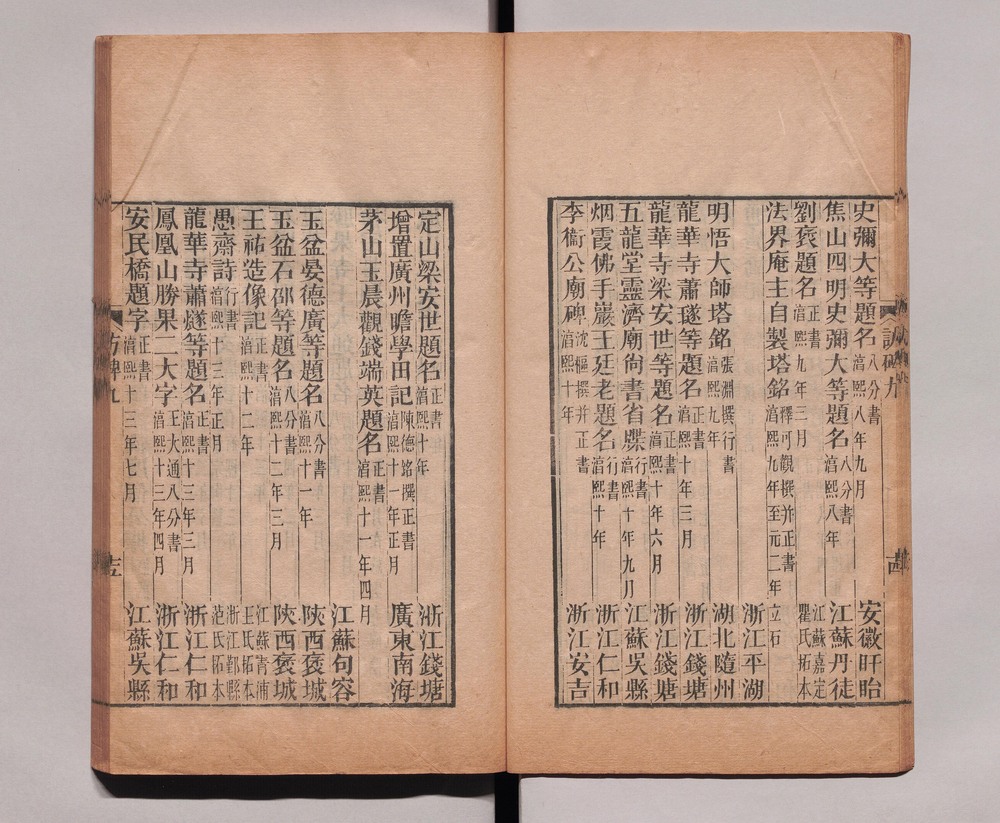 史彌大等題名八分書淳熙八年九月 安徽盱眙
焦山四明史彌大等題名八分書淳熙八年 江蘇丹徒
劉褒題名正書淳熙九年三月 江蘇嘉定瞿氏拓本
法界庵主自製塔銘釋可觀撰并正書淳熙九年至元二年立石
浙江平湖
明悟大師塔銘張淵撰行書淳熙九年 湖北隨州
龍華寺蕭㻽等題名正書淳熙十年三月 浙江錢塘
龍華寺梁安世等題名正書淳熙十年六月 浙江錢塘
五龍堂靈濟廟尙書省牒行書淳熙十年九月 江蘇吳縣
烟霞佛手巖王廷老題名行書淳熙十年 浙江仁和
李衞公廟碑沈樞撰并正書淳熙十年 浙江安吉
定山梁安世題名正書淳熙十年 浙江錢塘
增置廣州贍學田記陳德銘撰正書淳熙十一年正月 廣東南海
茅山玉晨觀錢端英題名正書淳熙十一年四月
江蘇句容
玉盆晏德廣等題名八分書淳熙十一年 陝西褒城
玉盆石邵等題名八分書淳熙十二年三月 陝西褒城
王祐造像記正書淳熙十二年 江蘇青浦王氏拓本
愚齋詩行書淳熙十三年正月 浙江鄞縣范氏拓本
龍華寺蕭燧等題名正書淳熙十三年三月 浙江仁和
鳳凰山勝果二大字王大通八分書淳熙十三年四月 浙江仁和
安民橋題字正書淳熙十三年七月 江蘇吳縣